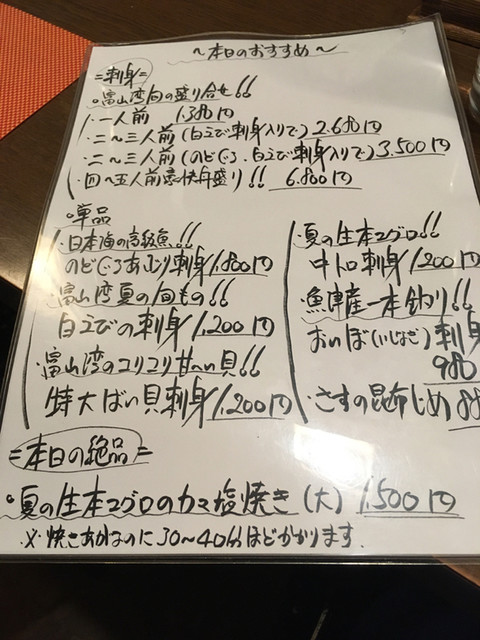 〜本日のおすすめ〜
=刺身=
◦富山湾旬の盛り合せ!!
・一人前 1.380円
・二〜三人前(白えび刺身入りで)2.680円
・二〜三人前(のどぐろ、白えび刺身入りで)3.500円
・四〜五人前豪快舟盛り!! 6.800円
◦単品
・日本海の高級魚!!
のどぐろあぶり刺身1.880円
・富山湾夏の旬もの!!
白えびの刺身1.200円
・富山湾のコリコリ甘〜い貝!!
特大ばい貝刺身1.200円
・夏の生本マグロ!!
中トロ刺身1.200円
・魚津産一本釣り!!
おいぼ(いしなぎ)刺身
980
・さすの昆布じめ 88
=本日の絶品=
◦夏の生本マグロのカマ塩焼き(大)1.500円
※焼きあがるのに30〜40分ほどかかります